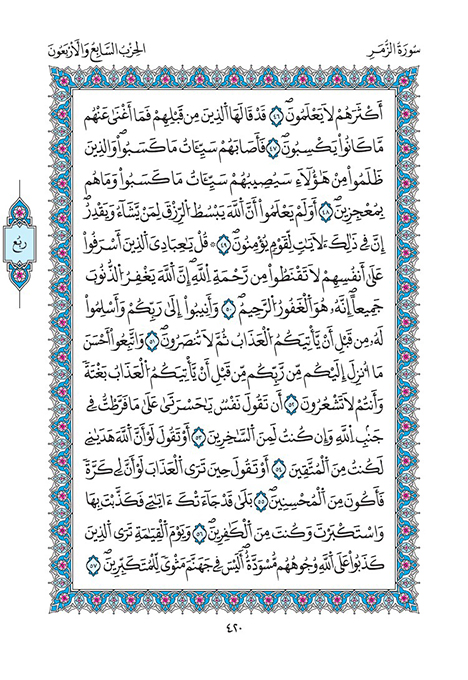 سُورَةُ الزُّمَرِ
الحِزْبُ السَّابِعُ وَالْأَرْبَعُونَ
أَكْثَرَهُمْ لَا يَعْلَمُونَۖ ٤٦ قَدْ قَالَهَا اَ۬لذِينَ مِن قَبْلِهِمْ فَمَا أَغْنَىٰ عَنْهُم
مَّا كَانُواْ يَكْسِبُونَۖ ٤٧ فَأَصَابَهُمْ سَيِّـَٔاتُ مَا كَسَبُواْۖ وَالذِينَ
ظَلَمُواْ مِنْ هَٰٓؤُلَآءِ سَيُصِيبُهُمْ سَيِّـَٔاتُ مَا كَسَبُواْ وَمَا هُم
بِمُعْجِزِينَۖ ٤٨ أَوَلَمْ يَعْلَمُواْ أَنَّ اَ۬للَّهَ يَبْسُطُ اُ۬لرِّزْقَ لِمَنْ يَّشَآءُ وَيَقْدِرُۖ
إِنَّ فِے ذَٰلِكَ لَأٓيَٰتٖ لِّقَوْمٖ يُؤْمِنُونَۖ ٤٩ ۞ قُلْ يَٰعِبَادِيَ اَ۬لذِينَ أَسْرَفُواْ
عَلَىٰٓ أَنفُسِهِمْ لَا تَقْنَطُواْ مِن رَّحْمَةِ اِ۬للَّهِۖ إِنَّ اَ۬للَّهَ يَغْفِرُ اُ۬لذُّنُوبَ
جَمِيعاًۖ اِنَّهُۥ هُوَ اَ۬لْغَفُورُ اُ۬لرَّحِيمُۖ ٥٠ وَأَنِيبُوٓاْ إِلَىٰ رَبِّكُمْ وَأَسْلِمُواْ
لَهُۥ مِن قَبْلِ أَنْ يَّأْتِيَكُمُ اُ۬لْعَذَابُ ثُمَّ لَا تُنصَرُونَۖ ٥١ وَاتَّبِعُوٓاْ أَحْسَنَ
مَآ أُنزِلَ إِلَيْكُم مِّن رَّبِّكُم مِّن قَبْلِ أَنْ يَّأْتِيَكُمُ اُ۬لْعَذَابُ بَغْتَةٗ
وَأَنتُمْ لَا تَشْعُرُونَۖ ٥٢ أَن تَقُولَ نَفْسٞ يَٰحَسْرَتَىٰ عَلَىٰ مَا فَرَّطتُّ فِے
جَنۢبِ اِ۬للَّهِ وَإِن كُنتُ لَمِنَ اَ۬لسَّٰخِرِينَ ٥٣ أَوْ تَقُولَ لَوْ أَنَّ اَ۬للَّهَ هَدَىٰنِے
لَكُنتُ مِنَ اَ۬لْمُتَّقِينَ ٥٤ أَوْ تَقُولَ حِينَ تَرَى اَ۬لْعَذَابَ لَوْ أَنَّ لِے كَرَّةٗ
فَأَكُونَ مِنَ اَ۬لْمُحْسِنِينَۖ ٥٥ بَلَىٰ قَدْ جَآءَتْكَ ءَايَٰتِے فَكَذَّبْتَ بِهَا
وَاسْتَكْبَرْتَ وَكُنتَ مِنَ اَ۬لْكَٰفِرِينَۖ ٥٦ وَيَوْمَ اَ۬لْقِيَٰمَةِ تَرَى اَ۬لذِينَ
كَذَبُواْ عَلَى اَ۬للَّهِ وُجُوهُهُم مُّسْوَدَّةٌۖ اَلَيْسَ فِے جَهَنَّمَ مَثْوىٗ لِّلْمُتَكَبِّرِينَۖ ٥٧
ربع
٤٢٠